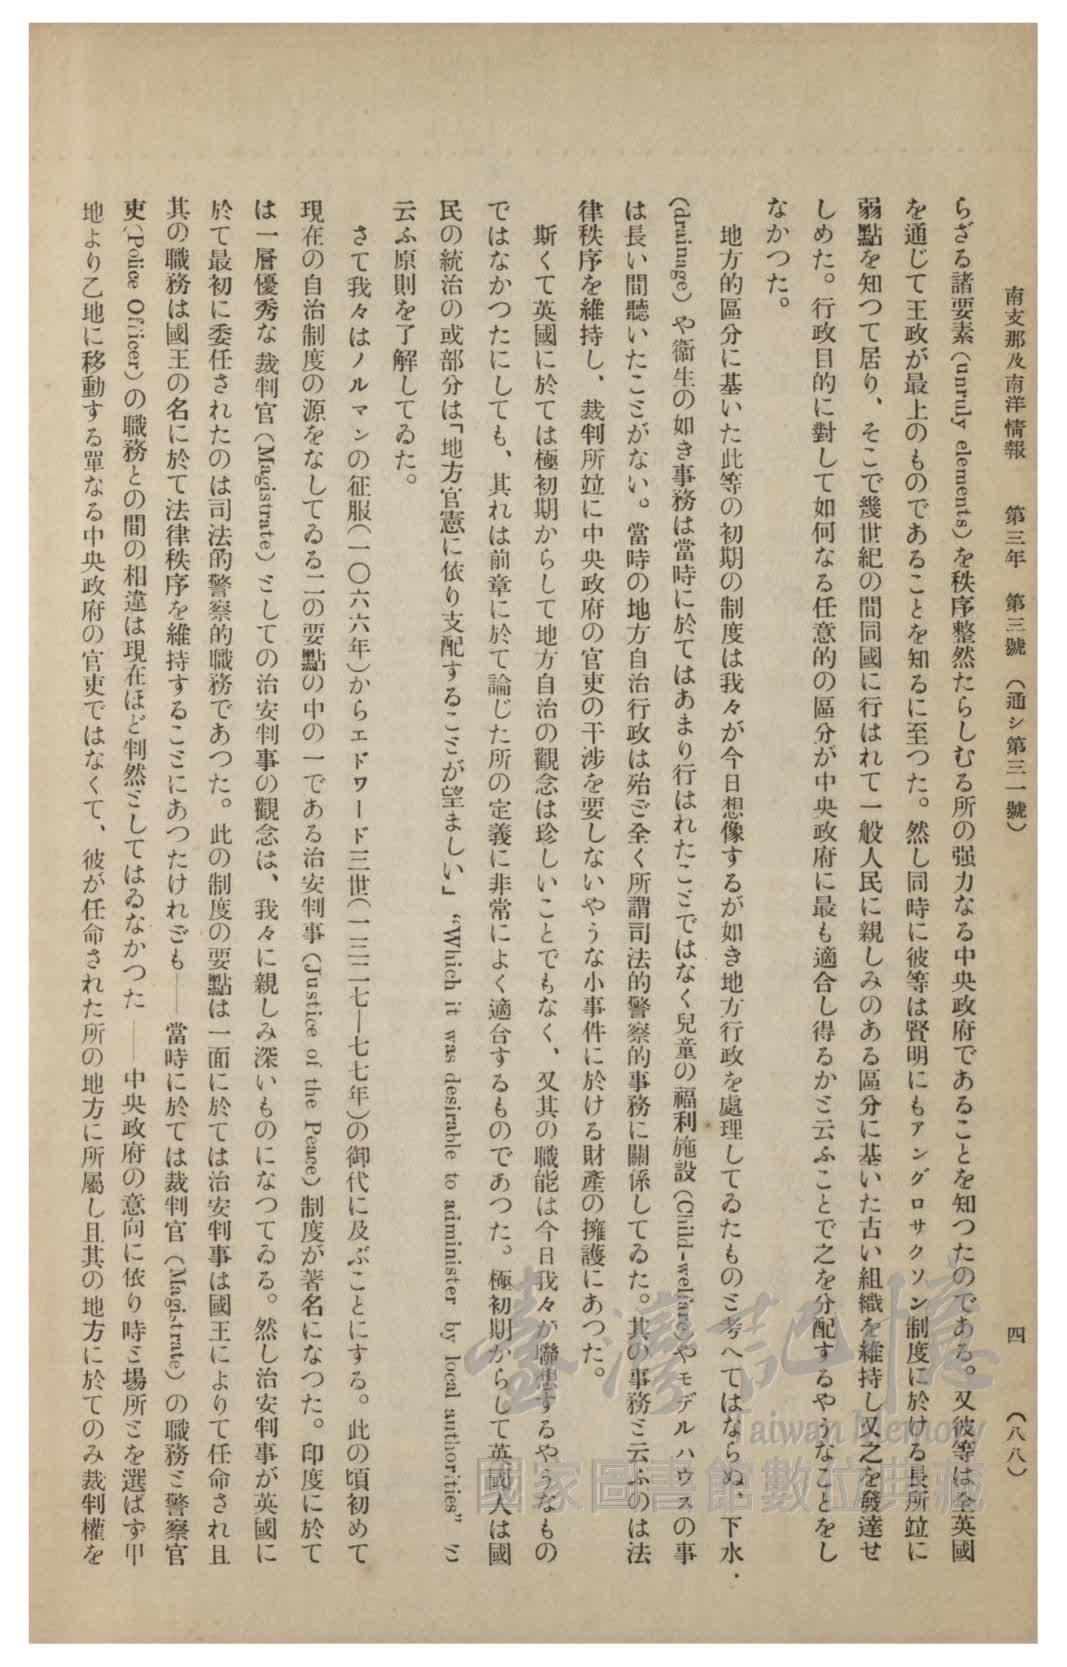 南支那及南洋情報　第三年　第三號（通シ第三一號）　四　（八八）
らざる諸要素(unruly elements)を秩序整然たらしむる所の强力なる中央政府であることを知つたのである。又彼等は全英國
を通じて王政が最上のものであることを知るに至つた。然し同時に彼等は賢明にもアングロサクソン制度に於ける長所竝に
弱點を知つて居り、そこで幾世紀の間同國に行はれて一般人民に親しみのある區分に基いた古い組織を維持し又之を發達せ
しめた。行政目的に對して如何なる任意的の區分が中央政府に最も適合し得るかと云ふことで之を分配するやうなことをし
なかつた。
地方的區分に基いた此等の初期の制度は我々が今日想像するが如き地方行政を處理してゐたものと考へてはならぬ、下水・
(drainage)や衞生の如き事務は當時に於てはあまり行はれたことではなく兒童の福利施設(Child-welfare)やモデルハウスの事
は長い間聽いたことがない。當時の地方自治行政は殆ど全く所謂司法的警察的事務に關係してゐた。其の事務と云ふのは法
律秩序を維持し、裁判所竝に中央政府の官吏の干涉を要しないやうな小事件に於ける財產の擁護にあつた。
斯くて英國に於ては極初期からして地方自治の觀念は珍しいことでもなく、又其の職能は今日我々が聯想するやうなもの
ではなかつたにしても、其れは前章に於て論じた所の定義に非常によく適合するものであつた。極初期からして英國人は國
民の統治の或部分は「地方官憲に依り支配することが望ましい」“Which it was desirable to administer by local authorities” と
云ふ原則を了解してゐた。
さて我々はノルマンの征服(一〇六六年)からエドワード三世(一三二七—七七年)の御代に及ぶことにする。此の頃初めて
現在の自治制度の源をなしてゐる二の要點の中の一である治安判事(Justice of the Peace)制度が著名になつた。印度に於て
は一層優秀な裁判官(Magistrate)としての治安判事の觀念は、我々に親しみ深いものになつてゐる。然し治安判事が英國に
於て最初に委任されたのは司法的警察的職務であつた。此の制度の要點は一面に於ては治安判事は國王によりて任命され且
其の職務は國王の名に於て法律秩序を維持することにあつたけれども——當時に於ては裁判官(Magistrate)の職務と警察官
吏(Police Officer)の職務との間の相違は現在ほど判然としてはゐなかつた——中央政府の意向に依り時と場所とを選ばず甲
地より乙地に移動する單なる中央政府の官吏ではなくて、彼が任命された所の地方に所屬し且其の地方に於てのみ裁判權を
臺灣記憶
Taiwan Memory
國家圖書館數位典藏